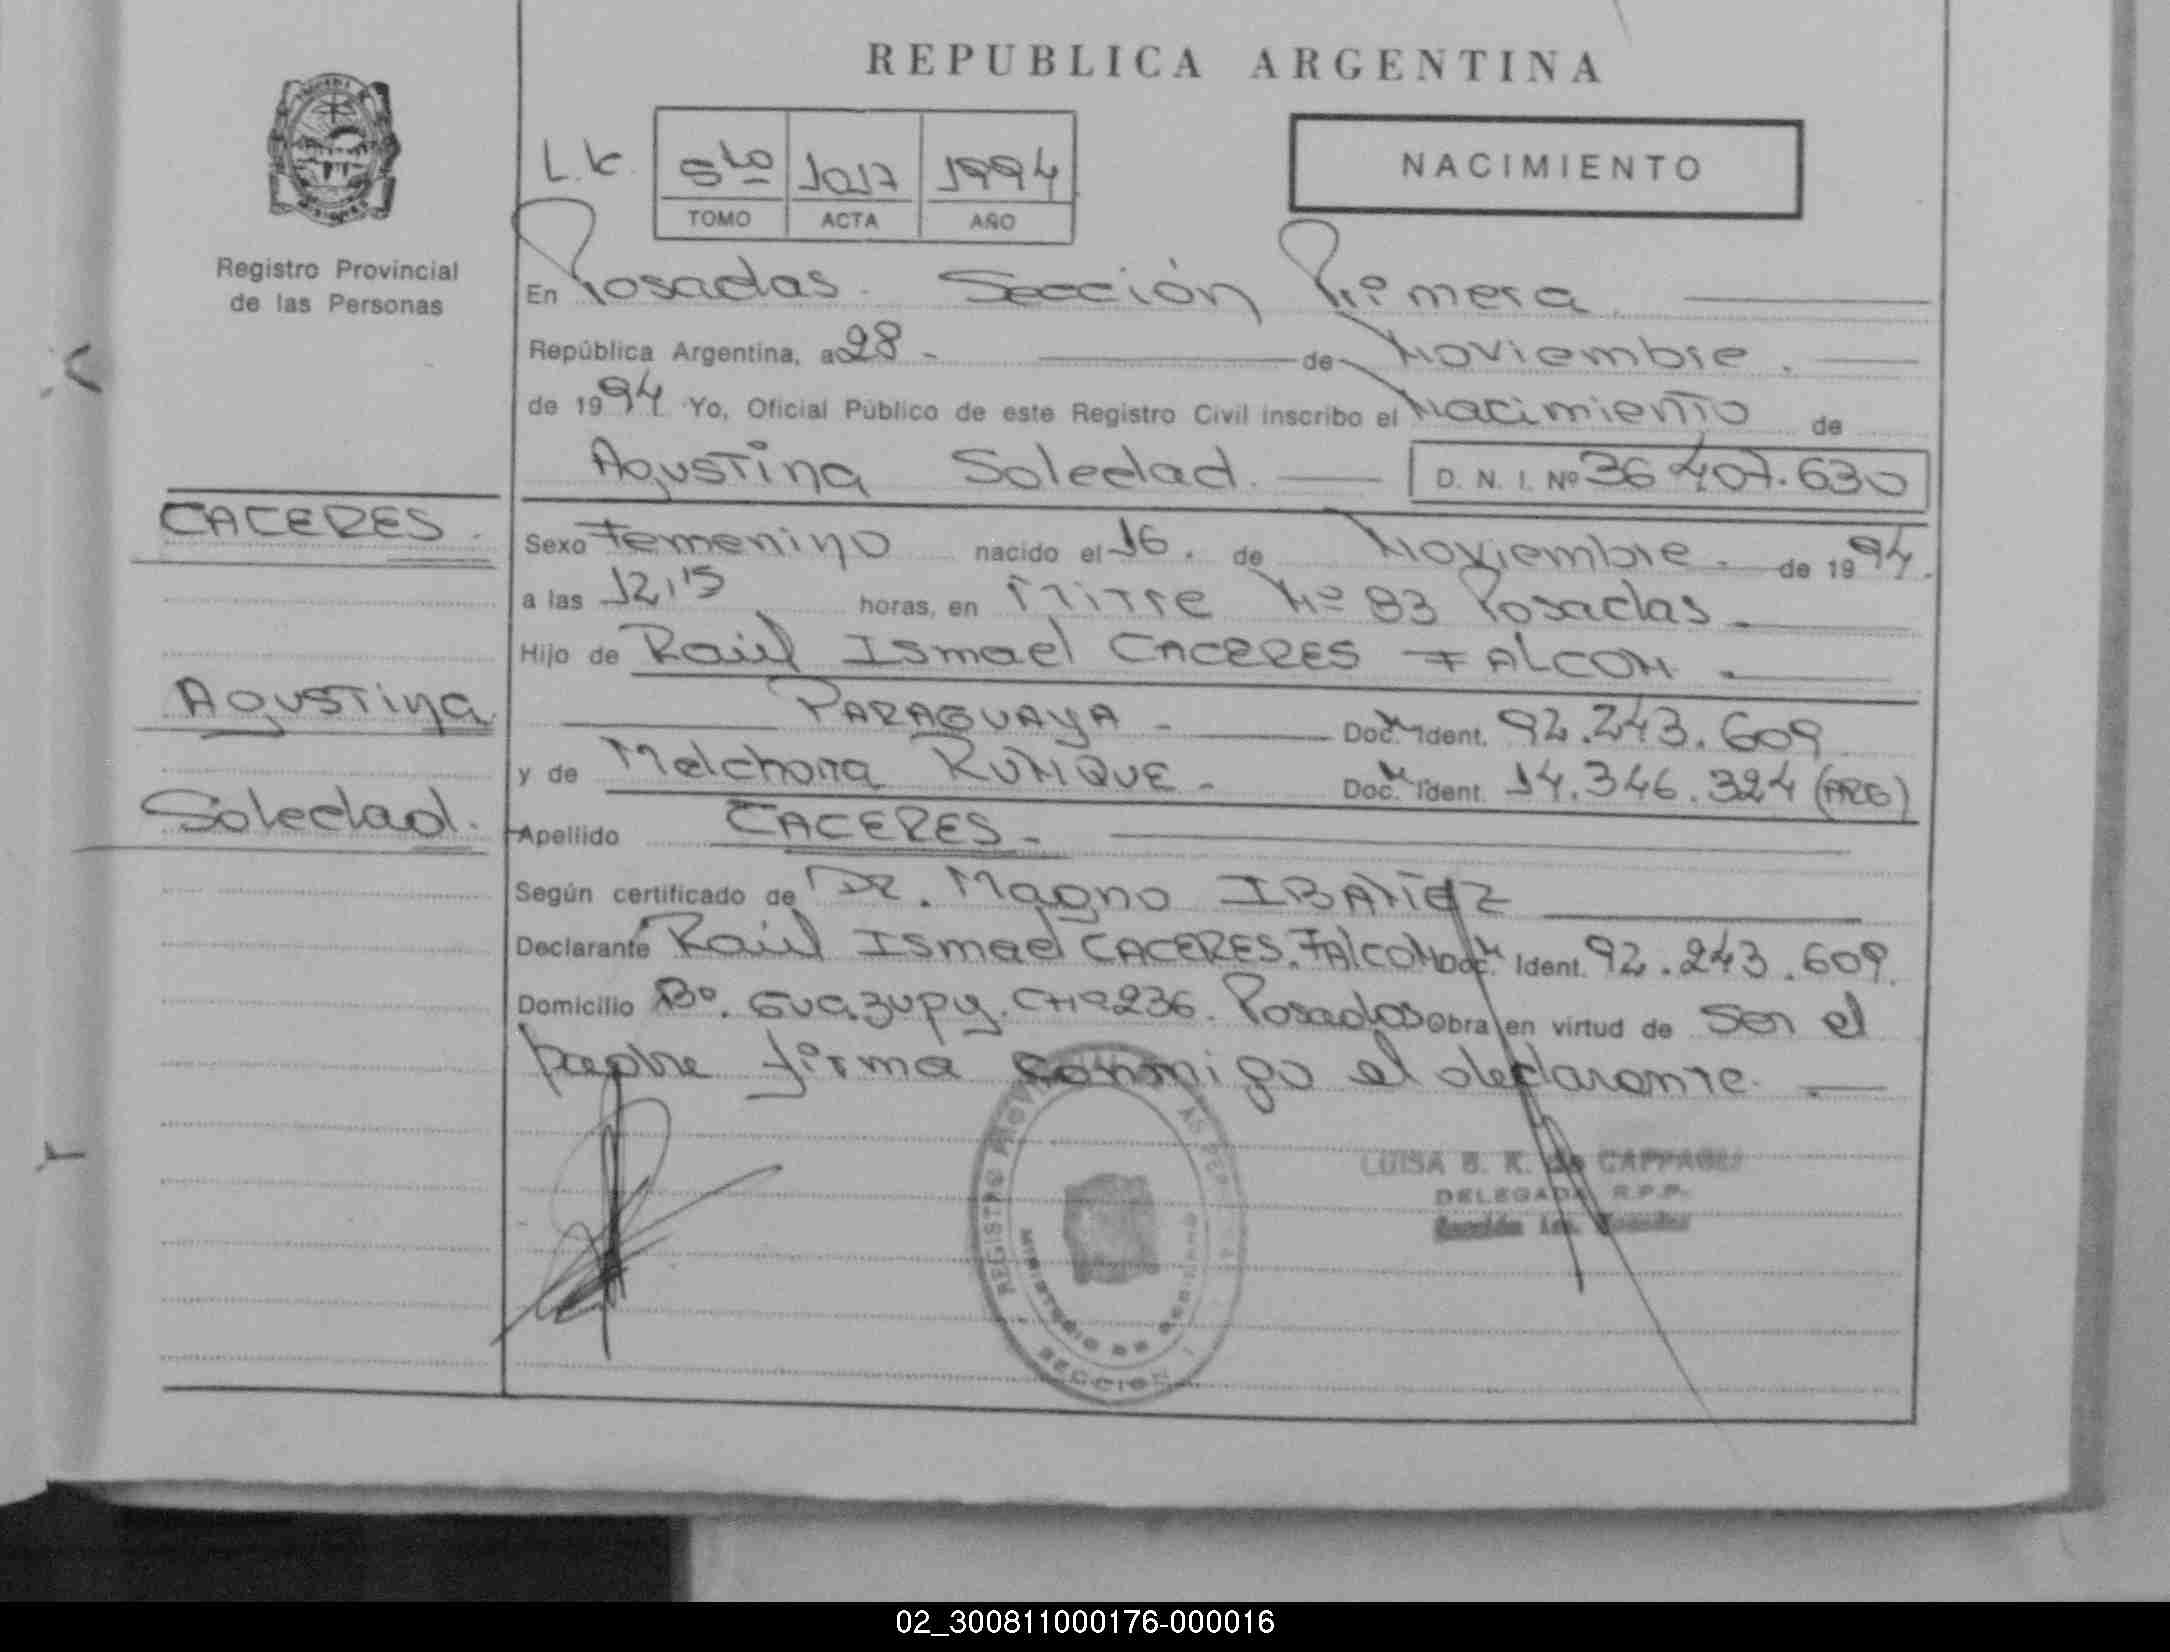 REPUBLICA ARGENTINA
L.K. 5to 1017 1994
TOMO ACTA AÑO
NACIMIENTO
Registro Provincial
de las Personas
En Posadas. Sección Primera.
República Argentina, a 28 - de Noviembre.
de 1994 Yo, Oficial Público de este Registro Civil inscribo el Nacimiento de
Agustina Soledad. D. N. I. Nº 36 407.630
CACERES.
Agustina
Soledad.
Sexo Femenino nacido el 16. de Noviembre. de 1994.
a las 12,15 horas, en Mitre Nº 83 Posadas.
Hijo de Raúl Ismael CACERES FALCON.
PARAGUAYA - Doc. Ident. 92.243.609
y de Melchora RUNQUE. Doc. Ident. 14.346.324 (ARG)
Apellido CACERES.
Según certificado de DR. Magno IBAÑEZ
Declarante Raúl Ismael CACERES. FALCON Doc. Ident. 92.243.609.
Domicilio Bº. Guazupy. CHº236. Posadas Obra en virtud de ser el
padre firma conmigo el declarante.
LUISA B. K. de CAPPAGLI
DELEGADA R.P.P.
Sección 1ra. Posadas
REGISTRO
MINISTERIO DE GOBIERNO
SECCION 1
02_300811000176-000016